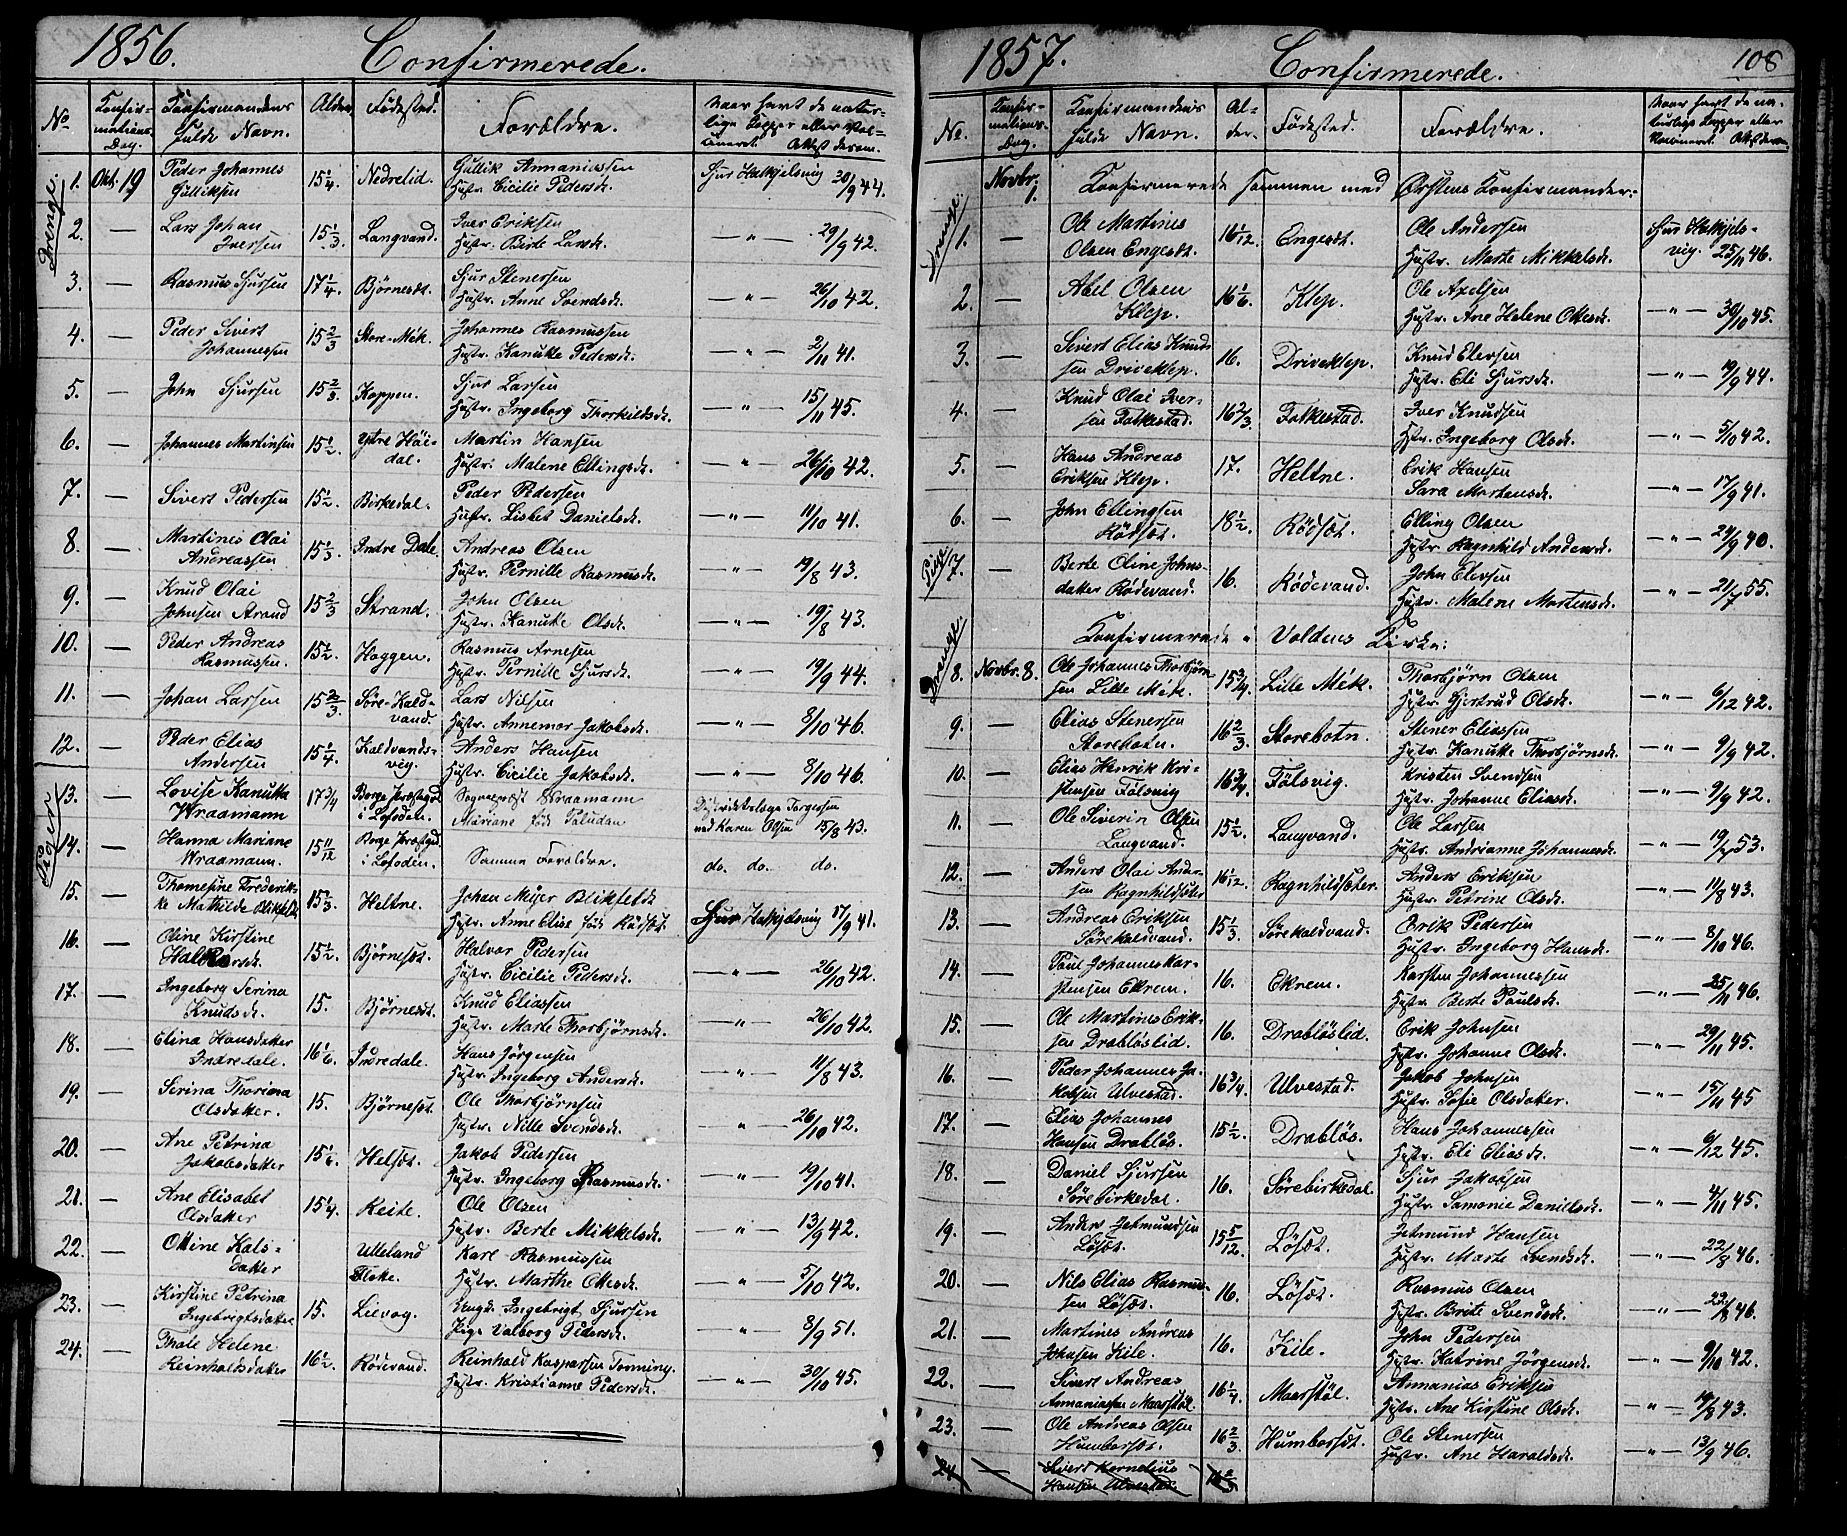 1856. Confirmerede.
No Konfirmations Dag. Konfirmandens fulde Navn. Alder Fødested. Forældre. Naar havt de naturlige Kopper eller Vaccineret. Attest derom.
Drenge.
1. Okt. 19 Peder Johannes Gulliksen 15 1/4. Nedrelid. Gullik Annaniassen Hustr. Cicilie Pedersdr. Sjur Halkjelsvig 30/9 44.
2. — Lars Johan Iversen 15 1/3. Langvand. Iver Eriksen Hustr. Birte Larsdr. — " — 29/9 42.
3. — Rasmus Sjursen 17 1/4. Bjørnesdt. Sjur Stenersen Hustr. Anne Svendsdr. — " — 26/10 42.
4. — Peder Sivert Johannessen 15 2/3 Store-Mek. Johannes Rasmussen Hustr. Hanukke Pedersdr. — " — 2/11 41.
5. — John Sjursen 15 2/3. Koppen. Sjur Larsen Hustr. Ingeborg Thorkildsdr. — " — 15/11 45.
6. — Johannes Martinsen 15 1/2. Ytre Höidal. Martin Hansen Hustr. Malene Ellingsdr. — " — 26/10 42.
7. — Sivert Pedersen 15 1/2. Birkedal. Peder Pedersen Hustr. Lisbet Danielsdr. — " — 11/10 41.
8. — Martines Olai Andreassen 15 1/3. Indre Dale. Andreas Olsen Hustr. Pernille Rasmusdr. — " — 19/8 43.
9. — Knud Olai Johnsen Strand 15 2/3 Strand. John Olsen Hustr. Hanukke Olsdr. — " — 19/8 43.
10. — Peder Andreas Rasmussen. 15 1/2. Haggen. Rasmus Arnesen Hustr. Pernille Sjursdr. — " — 19/9 44.
11. — Johan Larsen 15 2/3. Søre-Kaldvand. Lars Nilsen Hustr. Annemor Jakobsdr. — " — 8/10 46.
12. — Peder Elias Andersen 15 1/4. Kaldvandsvig. Anders Hansen Hustr. Cicilie Jakobsdr. — " — 8/10 46.
Piger
13. — Lovise Hanukka Wraamann 17 3/4 Borge Præstegd i Lofoden. Sogneprest Wraamann Mariane född Paludan Distriktslæge Torgersen ved Karen Olsen 15/8 43.
14. — Hanna Mariane Wraamann. 15 11/12 Borge Præstegd i Lofoden. Samme Forældre. do. do. do.
15. — Thomesine Frederikke Mathilde Blikfeldt 15 1/3. Heltne. Johan Meyer Blikfeldt Hustr. Anne Elise föd Rödset. Sjur Halkjelsvig 17/9 41.
16. — Oline Kirstine Halvorsdr. 15 1/2. Bjørnesdt. Halvor Pedersen Hustr. Cicilie Pedersdr. — " — 26/10 42.
17. — Ingeborg Serina Knudsdr. 15. Bjørnesdt. Knud Eliassen Hustr. Marte Thorbjørnsdr. — " — 26/10 42.
18. — Elina Hansdatter Indredale. 16 1/6. Indredale. Hans Jörgensen Hustr. Ingeborg Andersdr. — " — 11/8 43.
19. — Serina Thorina Olsdatter. 15. Bjørnesdt. Ole Thorbjörnsen Hustr. Nille Svendsdr. — " — 26/10 42.
20. — Ane Petrina Jakobsdatter 15 1/6. Helset. Jakob Pedersen Hustr. Ingeborg Rasmusdr. — " — 19/10 41.
21. — Ane Elisabet Olsdatter 15 1/4. Reite. Ole Olsen Hustr. Berte Mikkelsdr. — " — 13/9 42.
22. — Oline Kalsdatter Ulleland Floke. Karl Rasmussen Hustr. Marthe Ottesdr. — " — 5/10 42.
23. — Kirstine Petrina Ingebrigtsdatter 15. Lievog. Ungk. Ingebrigt Sjursen Pige Valborg Pedersdr. — " — 8/9 51.
24. — Thale Helene Reinholdsdatter 16 1/2. Rödevand. Reinhold Kaspersen Tonning. Hustr. Kristianne Pedersdr. — " — 30/10 45.
1857. Confirmerede. 108
No. Konfirmations. Dag. Konfirmandens fulde Navn. Alder. Fødested. Forældre. Naar havt de naturlige Kopper eller Vaccineret. Attest derom
Novbr. 1. Konfirmerede sammen med Ørstens Konfirmander:
Drenge.
1. — Ole Martines Olsen Engesdt. 16 1/12. Engesdt. Ole Andersen Hustr. Marte Mikkelsdr. Sjur Halkjelsvig. 25/11 46.
2. — Abel Olsen Klep. 16 1/6. Klep. Ole Axelsen Hustr. Ane Helene Ottesdr. — " — 30/10 45.
3. — Sivert Elias Knudsen Driveklep. 16. Driveklep. Knud Elevsen Hustr. Eli Sjursdr. — " — 19/9 44.
4. — Knud Olai Iversen Folkestad. 16 2/3. Folkestad. Iver Knudsen Hustr. Ingeborg Olsdr. — " — 5/10 42.
5. — Hans Andreas Eriksen Klep. 17. Heltne. Erik Hansen Sara Mortensdr. — " — 17/9 41.
6. — John Ellingsen Rödset. 18 1/2. Rödset. Elling Olsen Hustr. Ragnhild Andersdr. — " — 24/9 40.
Pige
7. — Berte Oline Johnsdatter Rödevand. 16. Rödevand. John Elevsen Hustr. Malene Mortensdr. — " — 21/7 55.
Konfirmerede i Voldens Kirke:
Drenge.
8. Novbr. 8. Ole Johannes Thorbjörnsen Lille Mek. 15 3/4. Lille Mek. Thorbjørn Olsen Hustr. Gjertrud Olsdr. — " — 6/12 42.
9. — Elias Stenersen Storebotn. 16 2/3. Storebotn. Stener Eliassen Hustr. Hanukke Thorbjørnsdr. — " — 9/9 42.
10. — Elias Henrik Kristensen Fölsvig 16 3/4. Fölsvig. Kristen Svendsen Hustr. Johanne Eliasdr. — " — 9/9 42.
11. — Ole Siverin Olsen Langvand. 15 1/2. Langvand. Ole Larsen Hustr. Andrianne Johannesdr. — " — 19/7 53.
12. — Anders Olai Andersen Ragnhildsöter 16 1/12. Ragnhildsöter. Anders Eriksen Hustr. Petrine Olsdr. — " — 11/8 43.
13. — Andreas Eriksen Sörekaldvand. 15 1/3. Sörekaldvand. Erik Pedersen Hustr. Ingeborg Hansdr. — " — 8/10 46.
14. — Paul Johannes Karstensen Ekrem. 16. Ekrem. Karsten Johannessen Hustr. Berte Paulsdr. — " — 25/11 46.
15. — Ole Martines Eriksen Drabløslid. 16. Drabløslid. Erik Johnsen Hustr. Johanne Olsdr. — " — 29/11 45.
16. — Peder Johannes Jakobsen Ulvestad. 16 3/4. Ulvestad. Jakob Johnsen Hustr. Sofie Olsdatter. — " — 15/11 45
17. — Elias Johannes Hansen Drabløs. 15 1/2. Drabløs. Hans Johannessen Hustr. Eli Eliasdr. — " — 6/12 45.
18. — Daniel Sjursen Sörebirkedal. 16. Sörebirkedal. Sjur Jakobsen Hustr. Samonie Danielsdr. — " — 4/11 45.
19. — Anders Jetmundsen Løset. 15 5/12. Løset. Jetmund Hansen Hustr. Marte Svendsdr. — " — 22/8 46.
20. — Nils Elias Rasmussen Løset. 16. Løset. Rasmus Olsen Hustr. Brite Svendsdr. — " — 22/8 46.
21. — Martines Andreas Johnsen Kile. 16. Kile. John Pedersen Hustr. Katrine Jörgensdr. — " — 9/10 42.
22. — Sivert Andreas Annaniassen Maarstöl. 16 1/4. Maarstöl. Annanias Eriksen Hustr. Ane Kirstine Olsdr. — " — 19/8 43.
23. — Ole Andreas Olsen Humborset. 16 2/3. Humborset. Ole Stenersen Hustr. Ane Haraldsdr. — " — 13/9 46.
24. — Sivert Kornelius Hansen Ulvestad 16 2/3